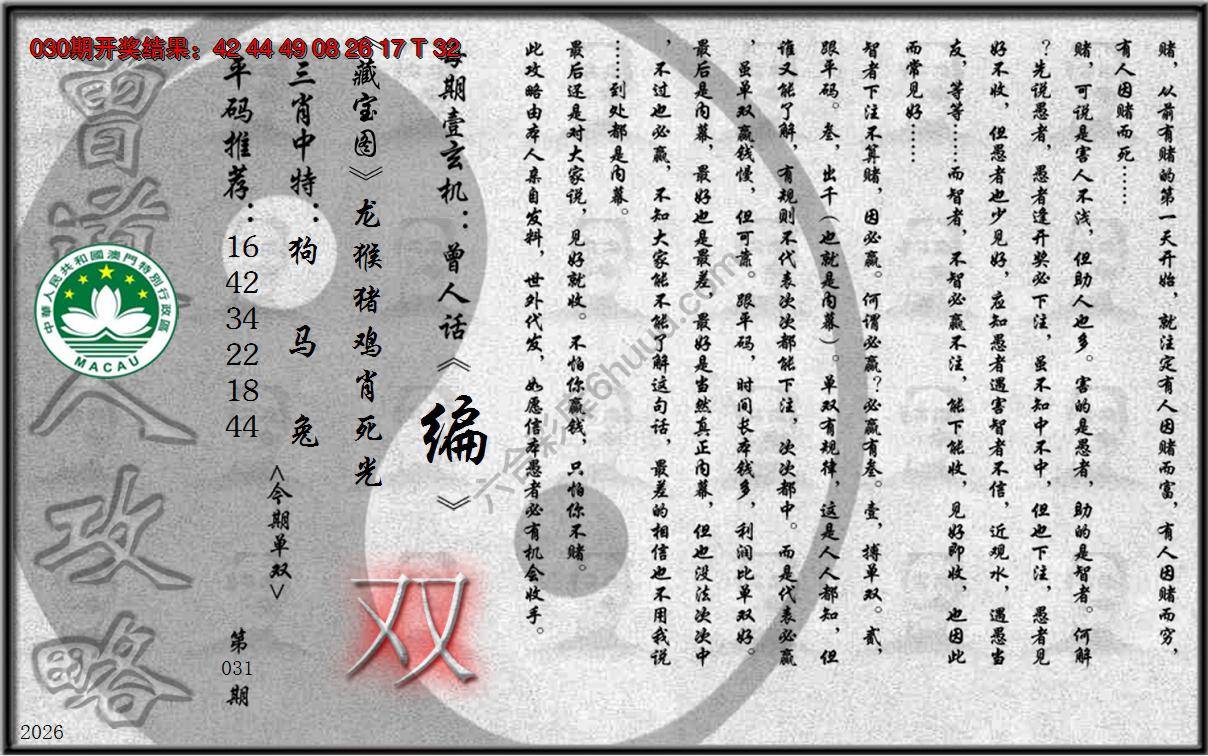 030期开奖结果：42 44 49 08 26 17 T 32
赌，从前有赌的第一天开始，就注定有人因赌而富，有人因赌而穷，
有人因赌而死……
赌，可说是害人不浅，但助人也多。害的是愚者，助的是智者。何解
？先说愚者，愚者逢开奖必下注，虽不知中不中，但也下注，愚者见
好不收，但愚者也少见好，应知愚者遇害智者不信，近观水，遇愚当
友，等等……而智者，不智必赢不注，能下能收，见好即收，也因此
而常见好……
智者下注不算赌，因必赢。何谓必赢？必赢有叁。壹，搏单双。贰，
跟平码。叁，出千（也就是内幕）。单双有规律，这是人人都知，但
谁又能了解，有规则不代表次次都能下注，次次都中。而是代表必赢
，虽单双赢钱慢，但可靠。跟平码，时间长本钱多，利润比单双好。
最后是内幕，最好也是最差，最好是当然真正内幕，但也没法次次中
，不过也必赢，不知大家能不能了解这句话，最差的相信也不用我说
……到处都是内幕。
最后还是对大家说，见好就收。不怕你赢钱，只怕你不赌。
此攻略由本人亲自发料，世外代发，如愿信本愚者必有机会收手。
每期壹玄机：曾人话《编》
《藏宝图》龙猴猪鸡肖死光
双
三肖中特：狗 马 兔
<今期单双>
平码推荐：
16
42
34
22
18
44
第
031
期
曾道人攻略
中華人民共和國澳門特別行政區
MACAU
2026
六合彩库6huuu.com